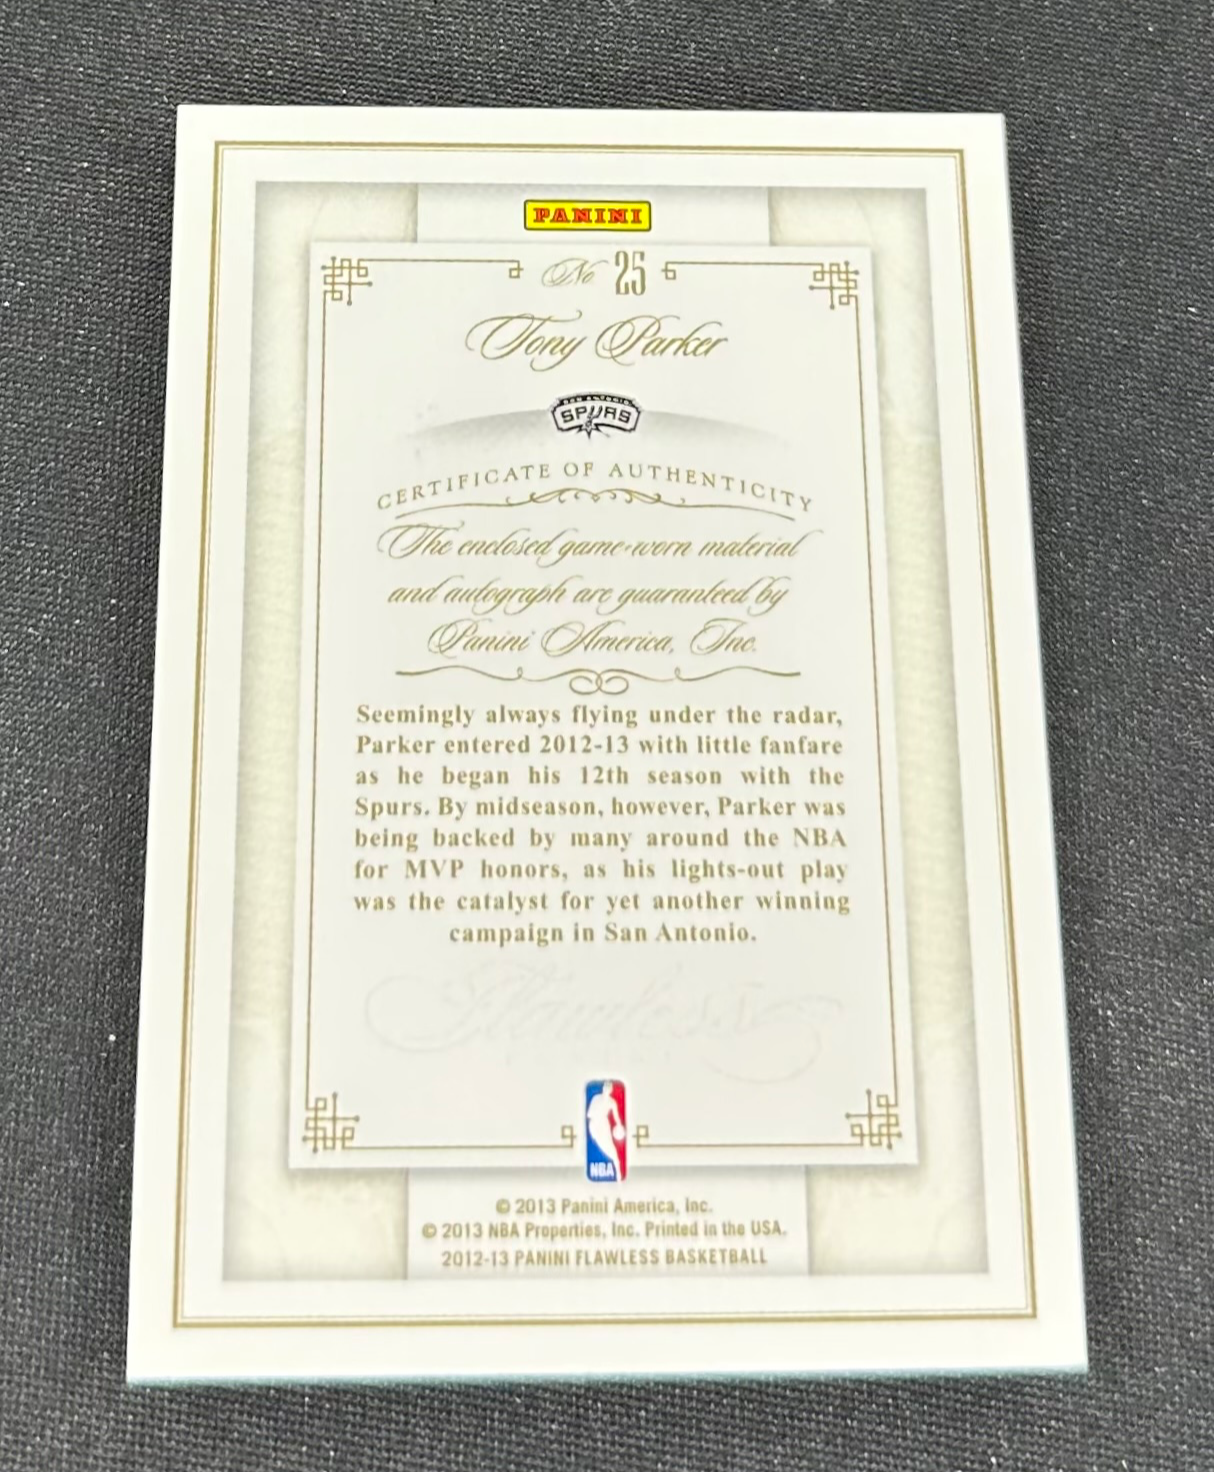 PANINI
No. 25
Tony Parker
SAN ANTONIO
SPURS
CERTIFICATE OF AUTHENTICITY
The enclosed game-worn material
and autograph are guaranteed by
Panini America, Inc.
Seemingly always flying under the radar,
Parker entered 2012-13 with little fanfare
as he began his 12th season with the
Spurs. By midseason, however, Parker was
being backed by many around the NBA
for MVP honors, as his lights-out play
was the catalyst for yet another winning
campaign in San Antonio.
Flawless
NBA
© 2013 Panini America, Inc.
© 2013 NBA Properties, Inc. Printed in the USA.
2012-13 PANINI FLAWLESS BASKETBALL